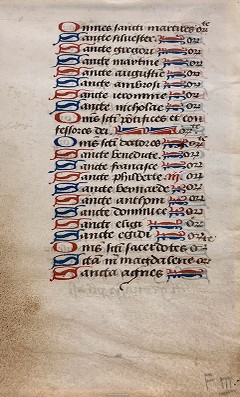 Omnes sancti martires or te
Sancte silvester or
Sancte gregori or
Sancte martine or
Sancte augustine or
Sancte ambrosi or
Sancte ieronime or
Sancte nicholae or
Oms sci pontifices et con
fessores dei or
Oms sci doctores or
Sancte benedicte or
Sancte francisce or
Sancte philiberte or
Sancte bernarde or
Sancte anthoni or
Sancte dominice or
Sancte eligi or
Sancte egidi or
Oms sci sacerdotes or
Scta m magdalene or
Sancta agnes or